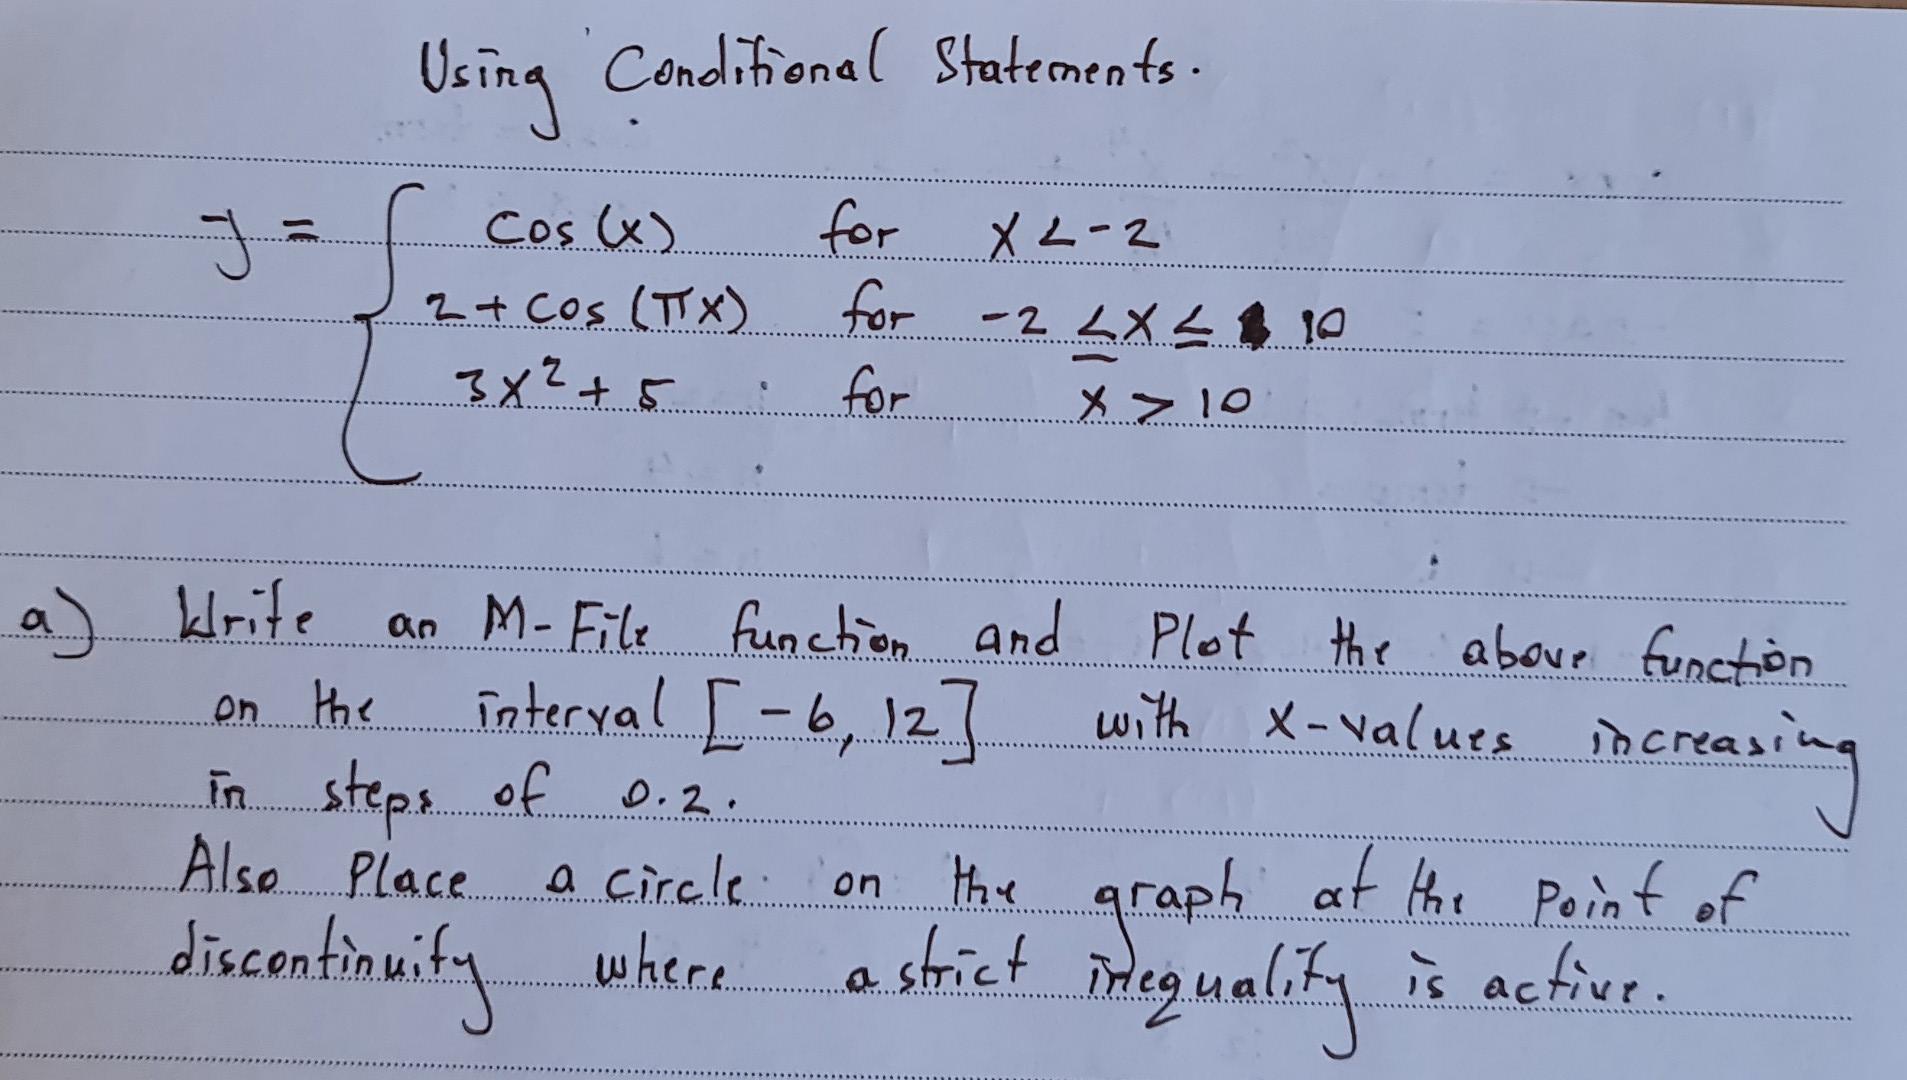 Using Conditional Statements.
y = { cos(x) for x < -2
2 + cos(πx) for -2 ≤ x ≤ 10
3x² + 5 for x > 10
a) Write an M-File function and Plot the above function
on the interval [-6, 12] with x-values increasing
in steps of 0.2.
Also Place a circle on the graph at the Point of
discontinuity where a strict inequality is active.